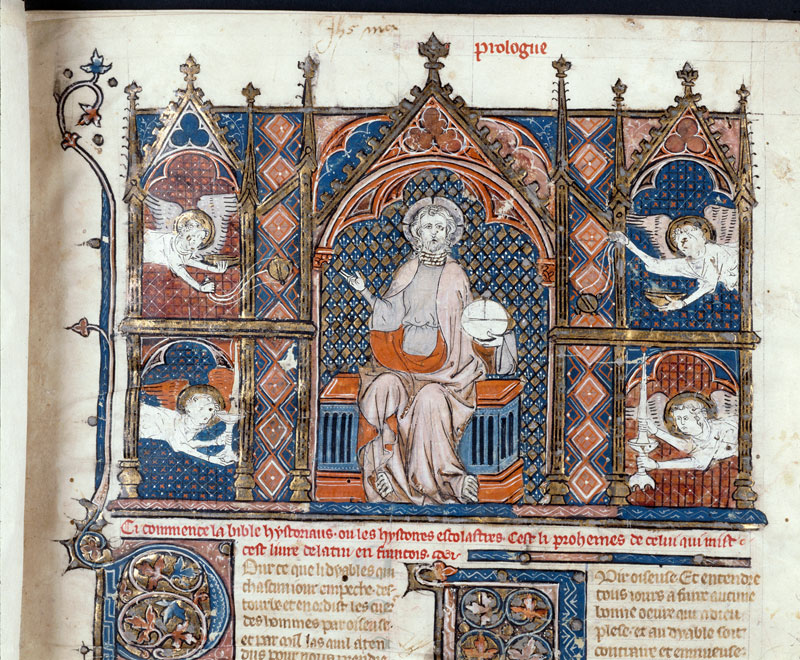 Jhs mar
prologue
Ci commence la bible hystoriaus. ou les hystoires escolastres. Cest li prohemes de celui qui mist
cest liure de latin en francois.
Pour ce que li dyables qui
chascun iour empeche. des-
tourbe et en ordist les cuers
des hommes par oiseuse.
et par mil las quil a ten
dus pour nous prendre
Pur oiseuse. Et entendre
tous iours a faire aucune
bonne oeure qui a dieu
plese. et au dyable soit
contraire et ennieuse.